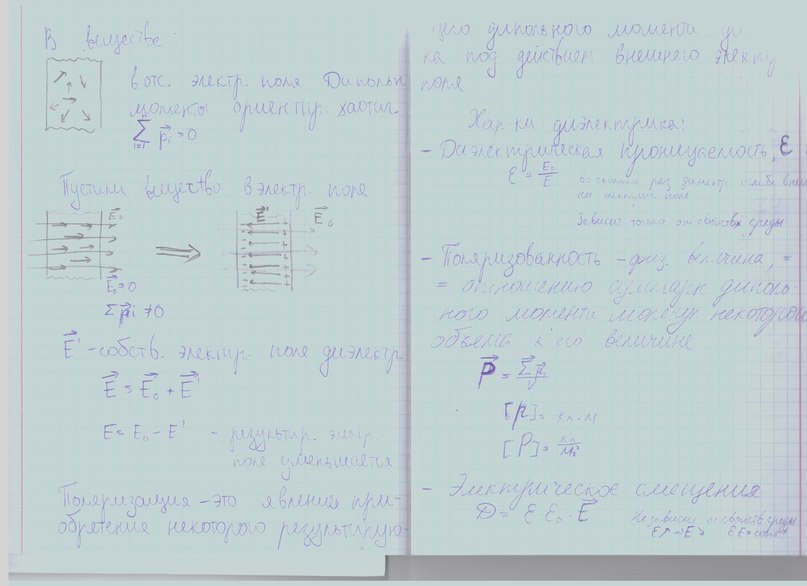 В веществе:
в отс. электр. поля Дипольн
моменты ориентир. хаотич.
n
∑ p⃗i = 0
i=1
Пустили вещество в электр поле
E⃗₀
E⃗'
E⃗₀
E⃗₀ > 0
∑ p⃗i ≠ 0
E⃗' - собств. электр. поле диэлектр.
E⃗ = E⃗₀ + E⃗'
E = E₀ - E' - результир. электр.
поле уменьшается
Поляризация - это явление при-
обретение некоторого результирую-
щего дипольного момента
ка под действием внешнего электр
поля
Хар-ки диэлектрика:
- Диэлектрическая проницаемость, ε
ε = E₀/E
Зависит только от свойств среды
- Поляризованность - физ величина, =
= отношению суммарн диполь-
ного момента молекул некоторого
объема к его величине
P⃗ = ∑p⃗i/V
[p] = Кл·м
[P] = Кл/м²
- Электрическое смещение
D = ε·ε₀·E⃗
Не зависит от свойств среды
ε↑ => E↘ εE = const